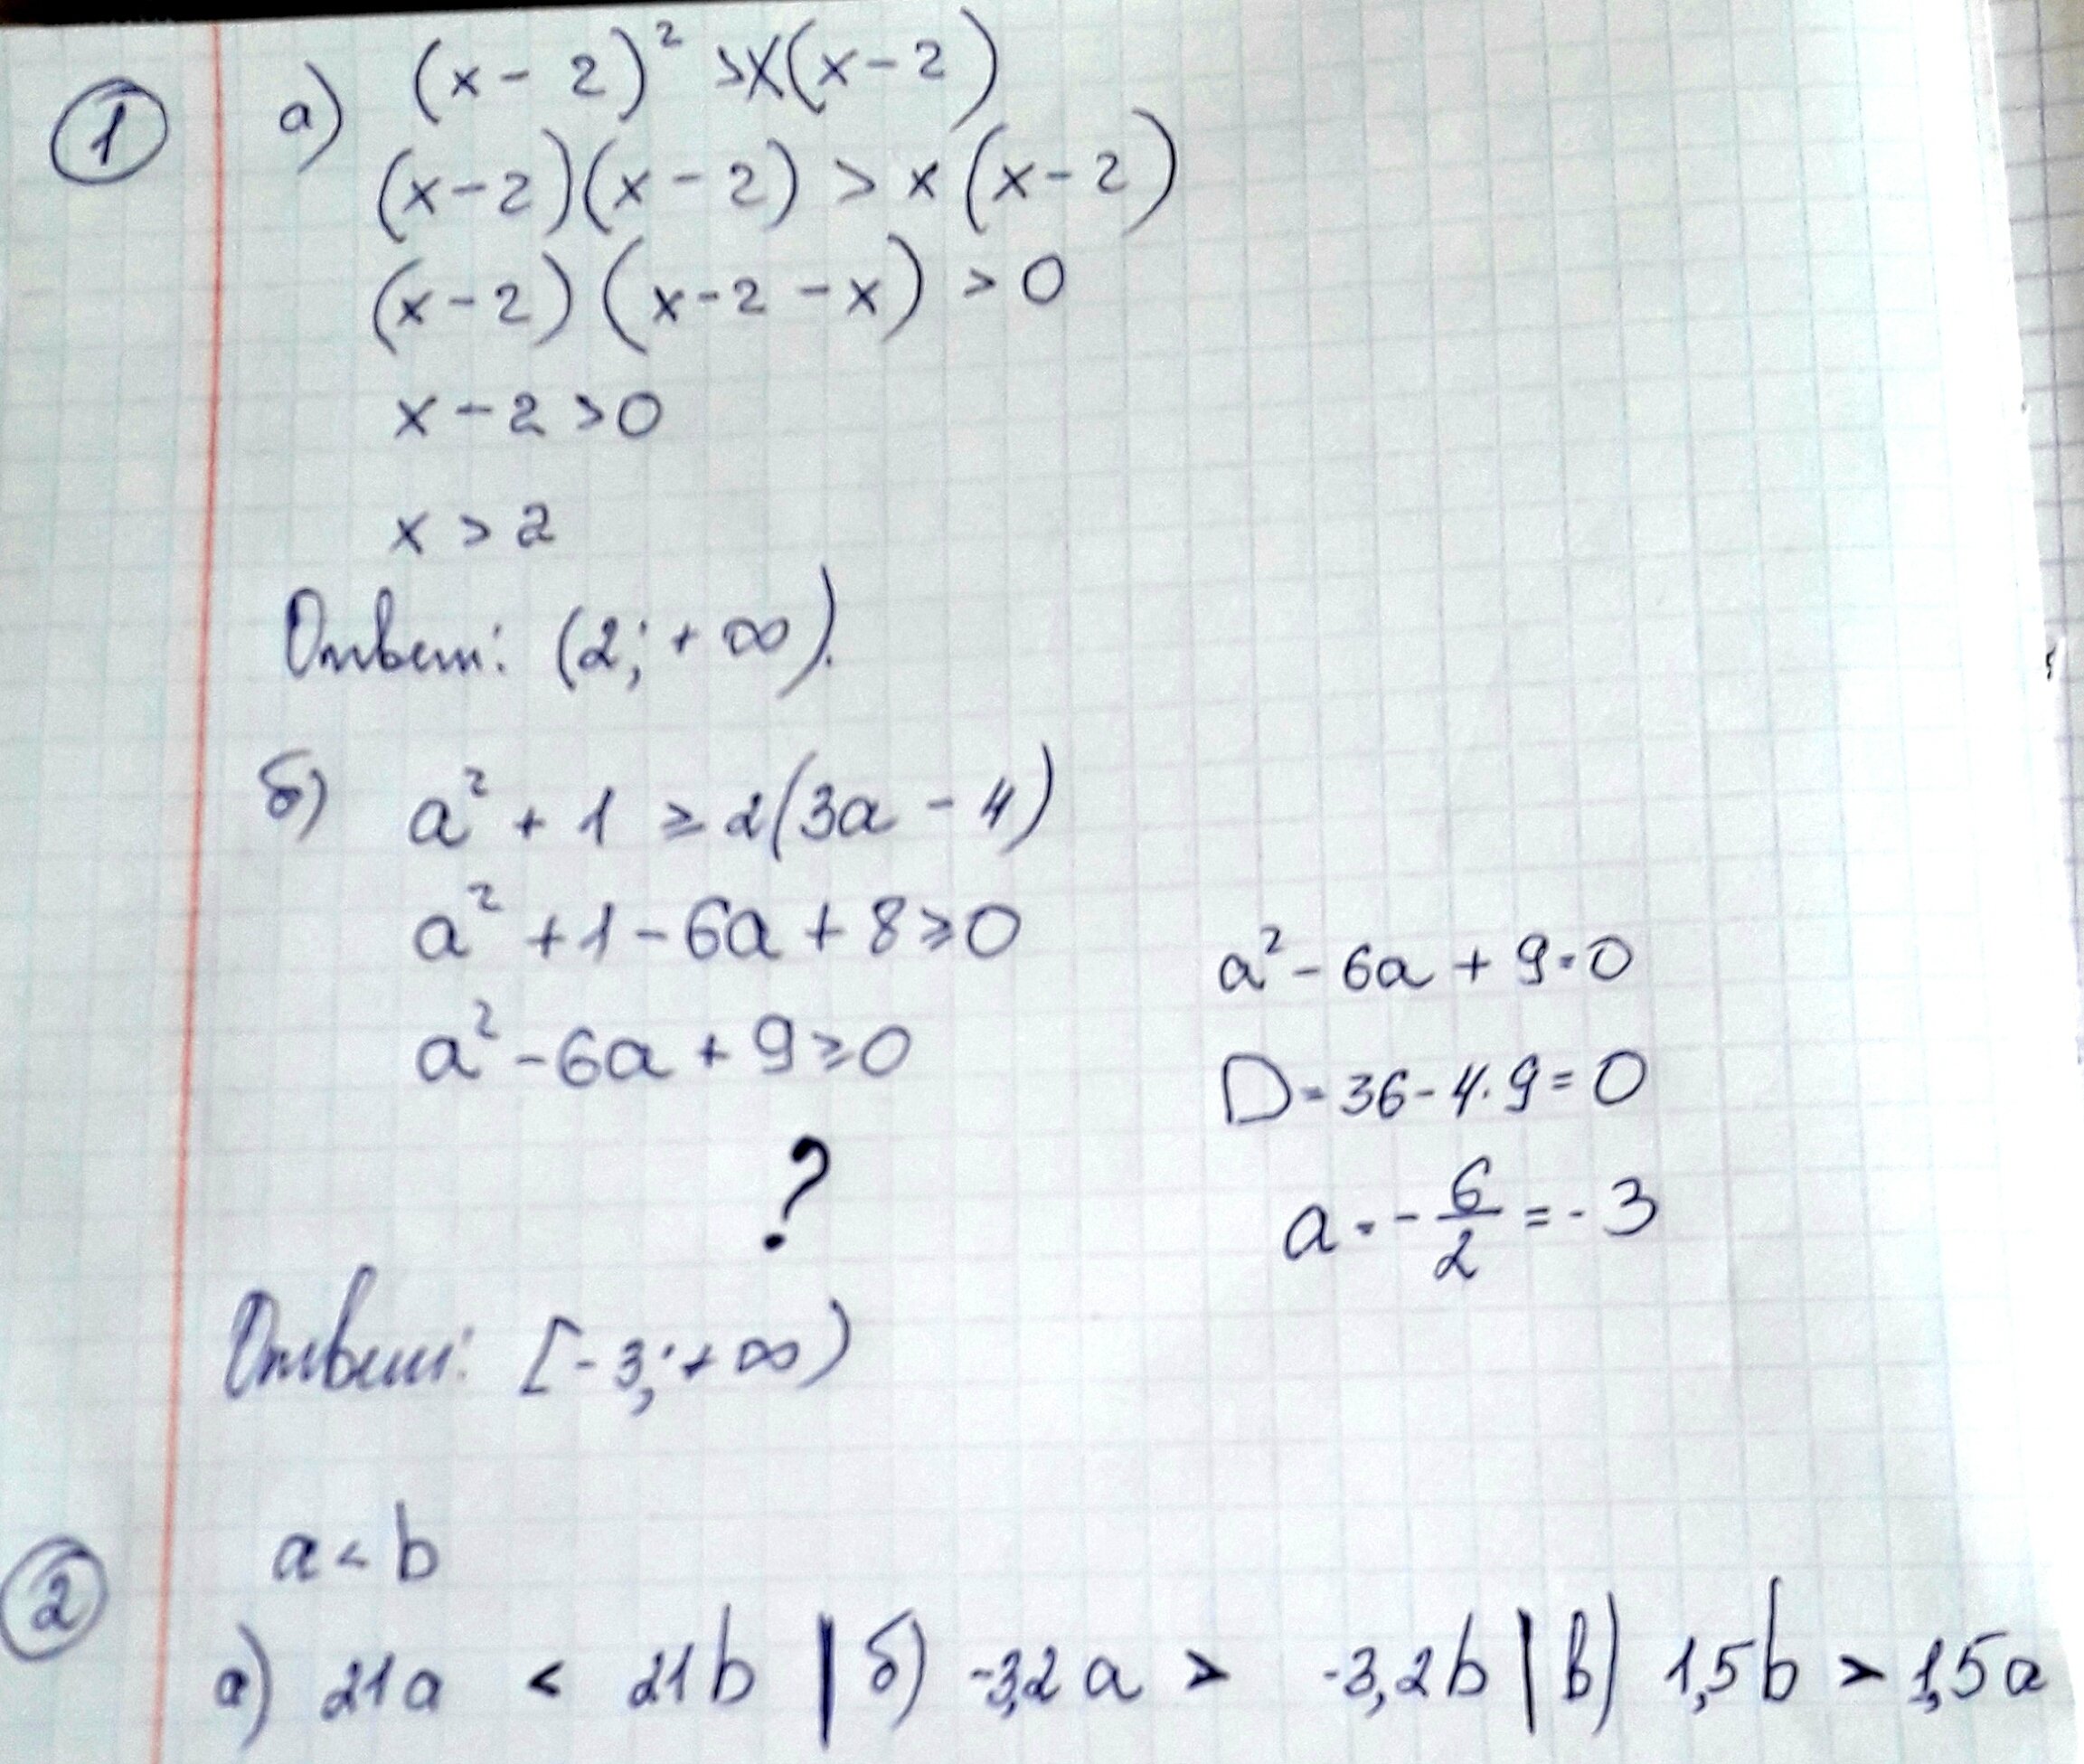 1 а) (x - 2)² > x(x - 2)
(x - 2)(x - 2) > x(x - 2)
(x - 2)(x - 2 - x) > 0
x - 2 > 0
x > 2
Ответ: (2; + ∞).
б) a² + 1 ≥ 2(3a - 4)
a² + 1 - 6a + 8 ≥ 0
a² - 6a + 9 ≥ 0
?
a² - 6a + 9 = 0
D = 36 - 4·9 = 0
a = - 6/2 = - 3
Ответ: [- 3; + ∞)
2 a < b
а) 21a < 21b | б) -3,2a > -3,2b | в) 1,5b > 1,5a